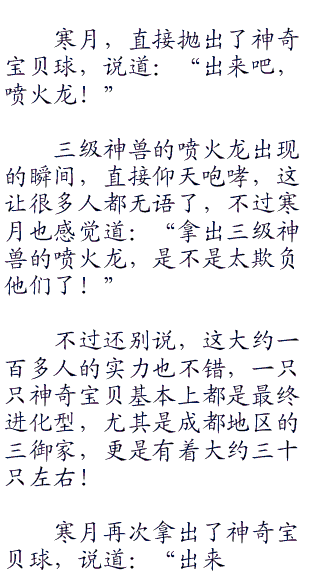 寒月，直接抛出了神奇
宝贝球，说道：“出来吧，
喷火龙！”
三级神兽的喷火龙出现
的瞬间，直接仰天咆哮，这
让很多人都无语了，不过寒
月也感觉道：“拿出三级神
兽的喷火龙，是不是太欺负
他们了！”
不过还别说，这大约一
百多人的实力也不错，一只
只神奇宝贝基本上都是最终
进化型，尤其是成都地区的
三御家，更是有着大约三十
只左右！
寒月再次拿出了神奇宝
贝球，说道：“出来